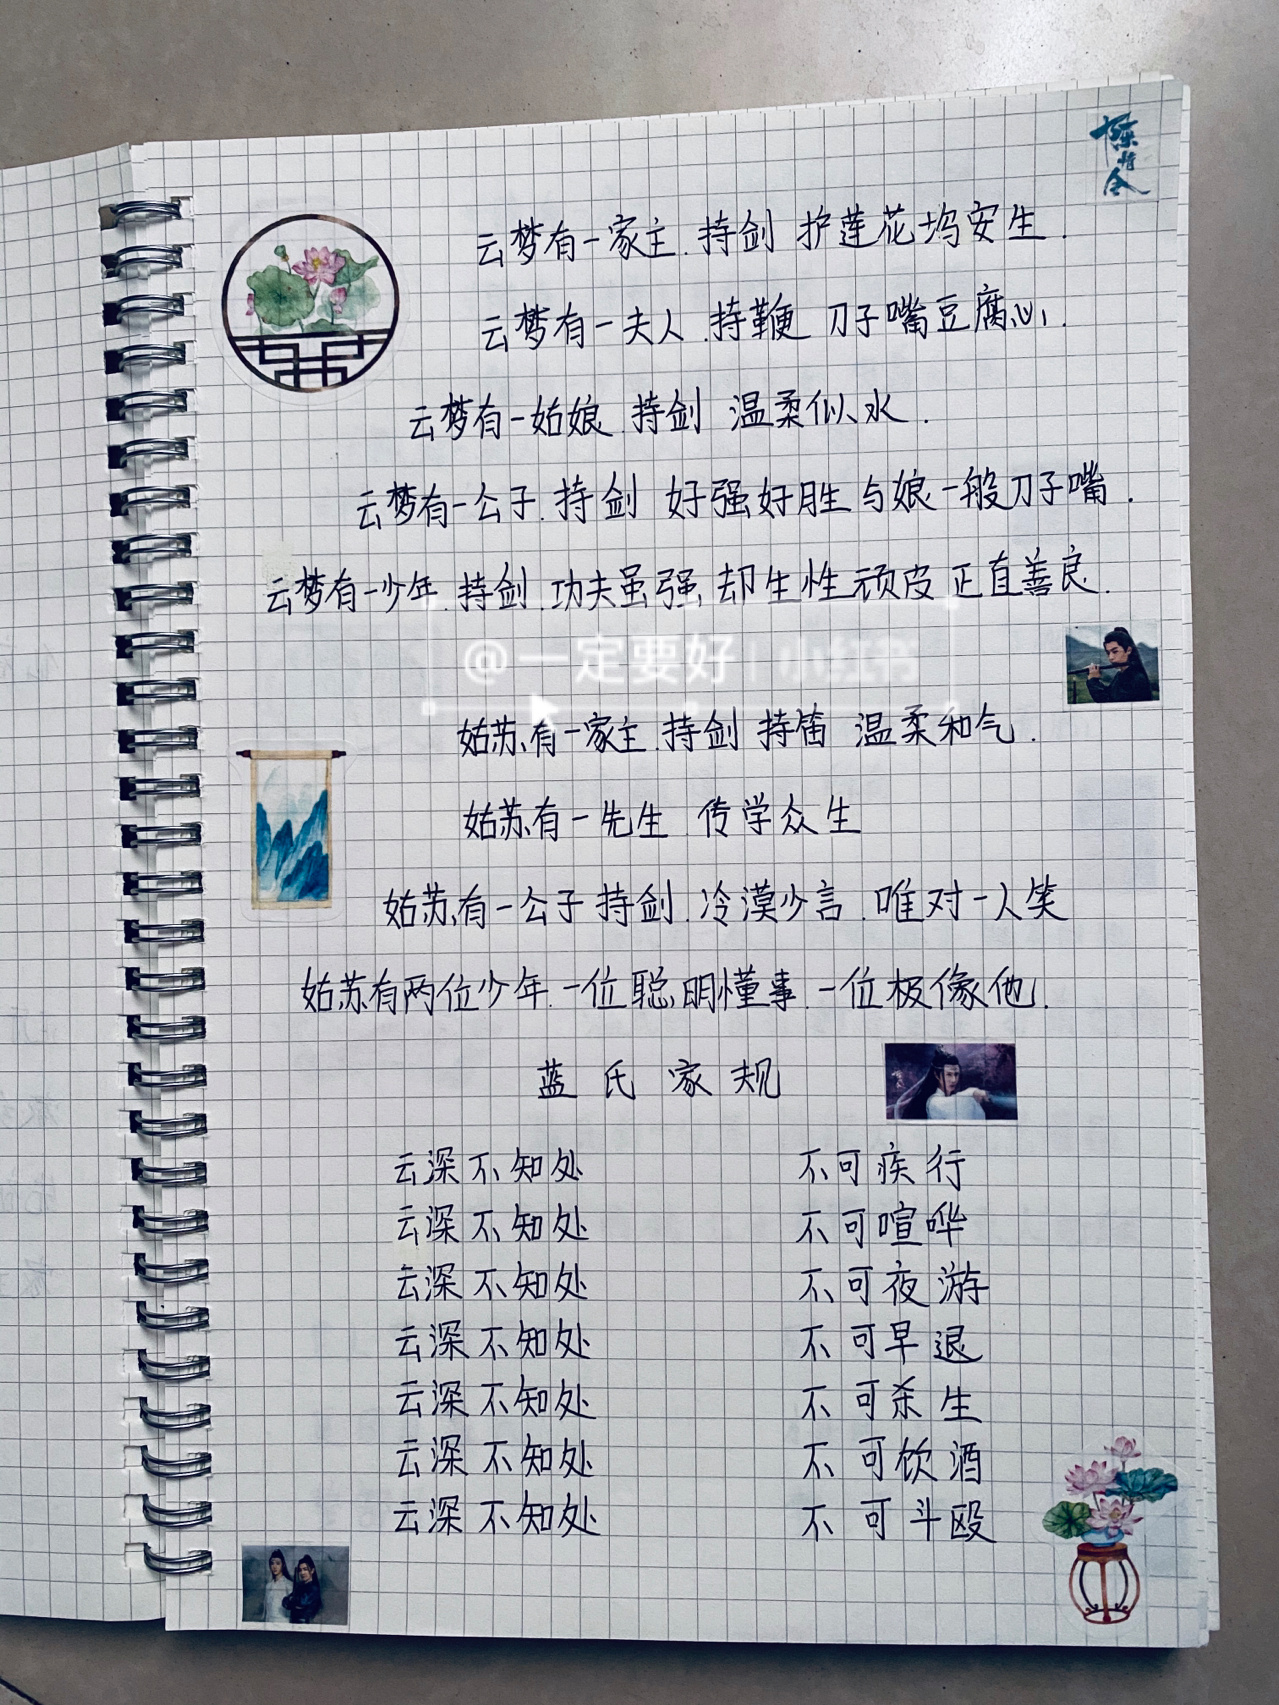 陈情令
云梦有一家主.持剑 护莲花坞安生.
云梦有一夫人.持鞭 刀子嘴豆腐心.
云梦有一姑娘.持剑 温柔似水.
云梦有一公子.持剑 好强好胜 与娘一般刀子嘴.
云梦有一少年.持剑.功夫虽强 却生性顽皮 正直善良.
@一定要好|小红书
姑苏有一家主.持剑 持笛 温柔和气.
姑苏有一先生 传学众生
姑苏有一公子 持剑.冷漠少言.唯对一人笑
姑苏有两位少年.一位聪明懂事.一位极像他.
蓝氏家规
云深不知处 不可疾行
云深不知处 不可喧哗
云深不知处 不可夜游
云深不知处 不可早退
云深不知处 不可杀生
云深不知处 不可饮酒
云深不知处 不可斗殴